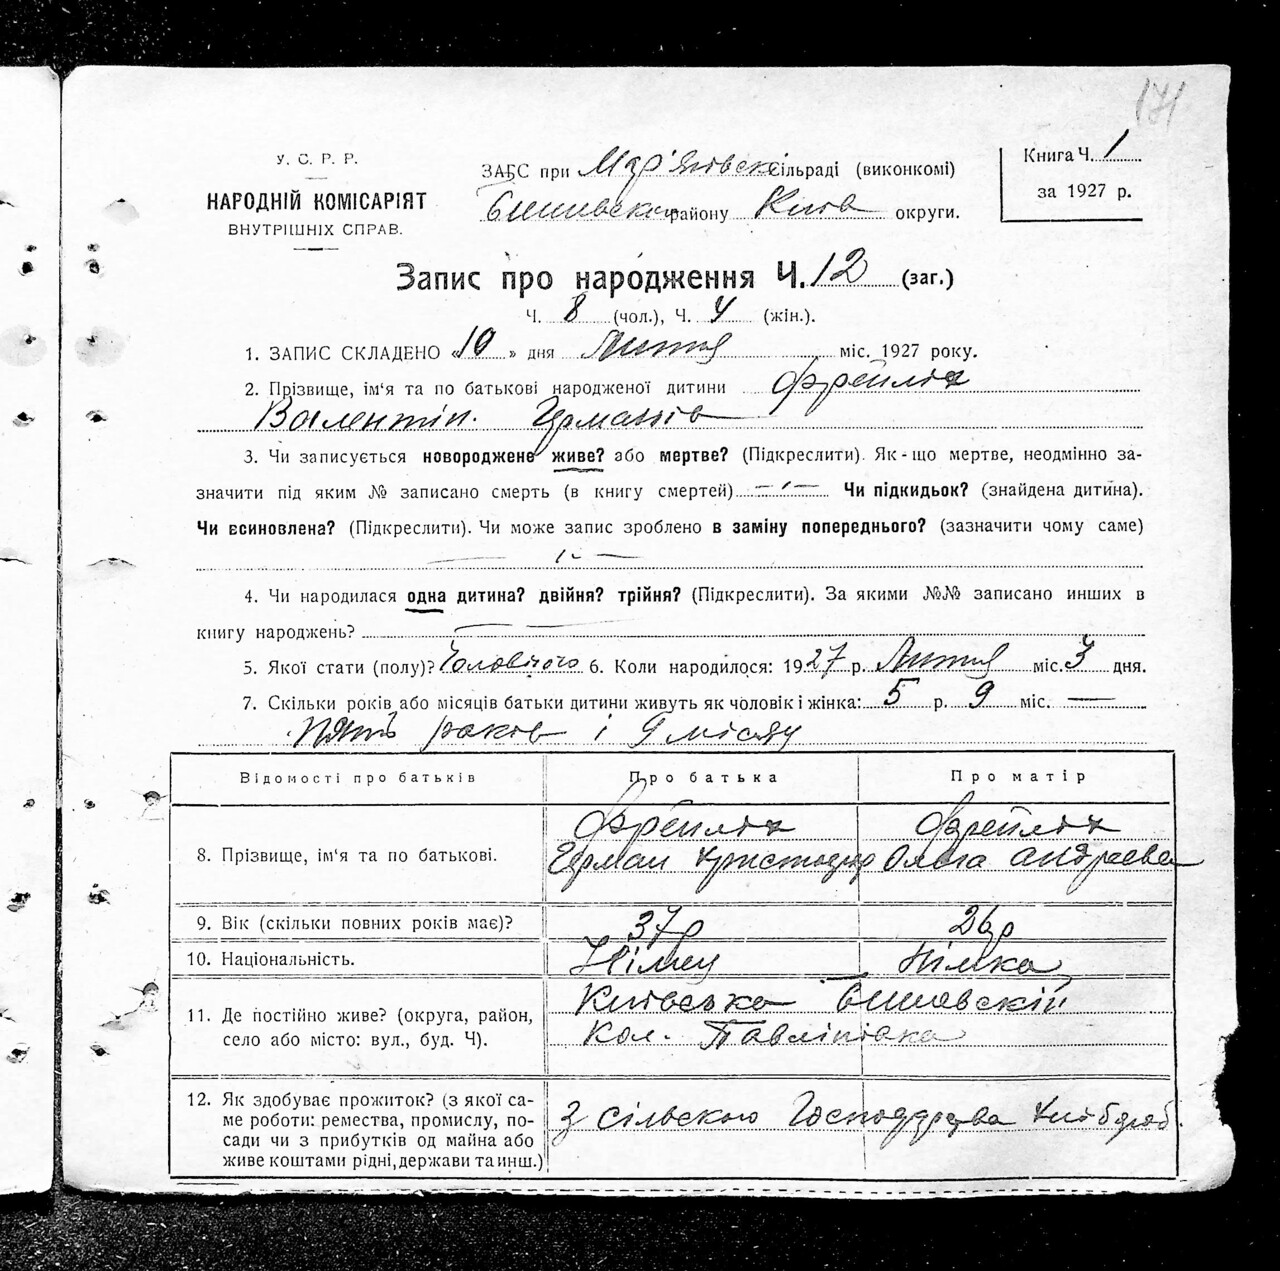 171
У. С. Р. Р.
НАРОДНІЙ КОМІСАРІЯТ
ВНУТРІШНІХ СПРАВ.
ЗАГС при Мар'янівскі сільраді (виконкомі)
Бишівськом району Київ округи.
Книга Ч. 1
за 1927 р.
Запис про народження Ч. 12 (заг.)
Ч. 8 (чол.), Ч. 4 (жін.).
1. ЗАПИС СКЛАДЕНО «10» дня Лютня міс. 1927 року.
2. Прізвище, ім'я та по батькові народженої дитини Фрейліх
Валентін. Германів
3. Чи записується новороджене живе? або мертве? (Підкреслити). Як-що мертве, неодмінно за-
значити під яким № записано смерть (в книгу смертей) Чи підкидьок? (знайдена дитина).
Чи всиновлена? (Підкреслити). Чи може запис зроблено в заміну попереднього? (зазначити чому саме)
4. Чи народилася одна дитина? двійня? трійня? (Підкреслити). За якими №№ записано инших в
книгу народжень?
5. Якої стати (полу)? Чоловічого 6. Коли народилося: 1927 р. Лютня міс. 3 дня.
7. Скільки років або місяців батьки дитини живуть як чоловік і жінка: 5 р. 9 міс. —
пять років і 9 місяцу
Відомості про батьків Про батька Про матір
8. Прізвище, ім'я та по батькові.
Фрейліх Фрейліх
Герман Христофор Ольга Андреева
9. Вік (скільки повних років має)? 37р 26р
10. Національність. Німец Німка
11. Де постійно живе? (округа, район,
село або місто: вул., буд. Ч).
Київська Бишівскій
Кол. Павлінівка
12. Як здобуває прожиток? (з якої са-
ме роботи: ремества, промислу, по-
сади чи з прибутків од майна або
живе коштами рідні, держави та инш.)
З сільского Господарства хлібороб.